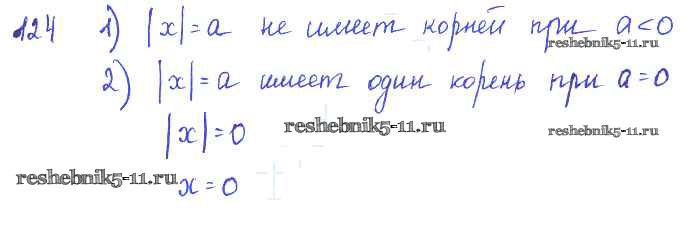 124 1) |x|=a не имеет корней при a<0
reshebnik5-11.ru
2) |x|=a имеет один корень при a=0
|x|=0 reshebnik5-11.ru reshebnik5-11.ru
reshebnik5-11.ru x=0